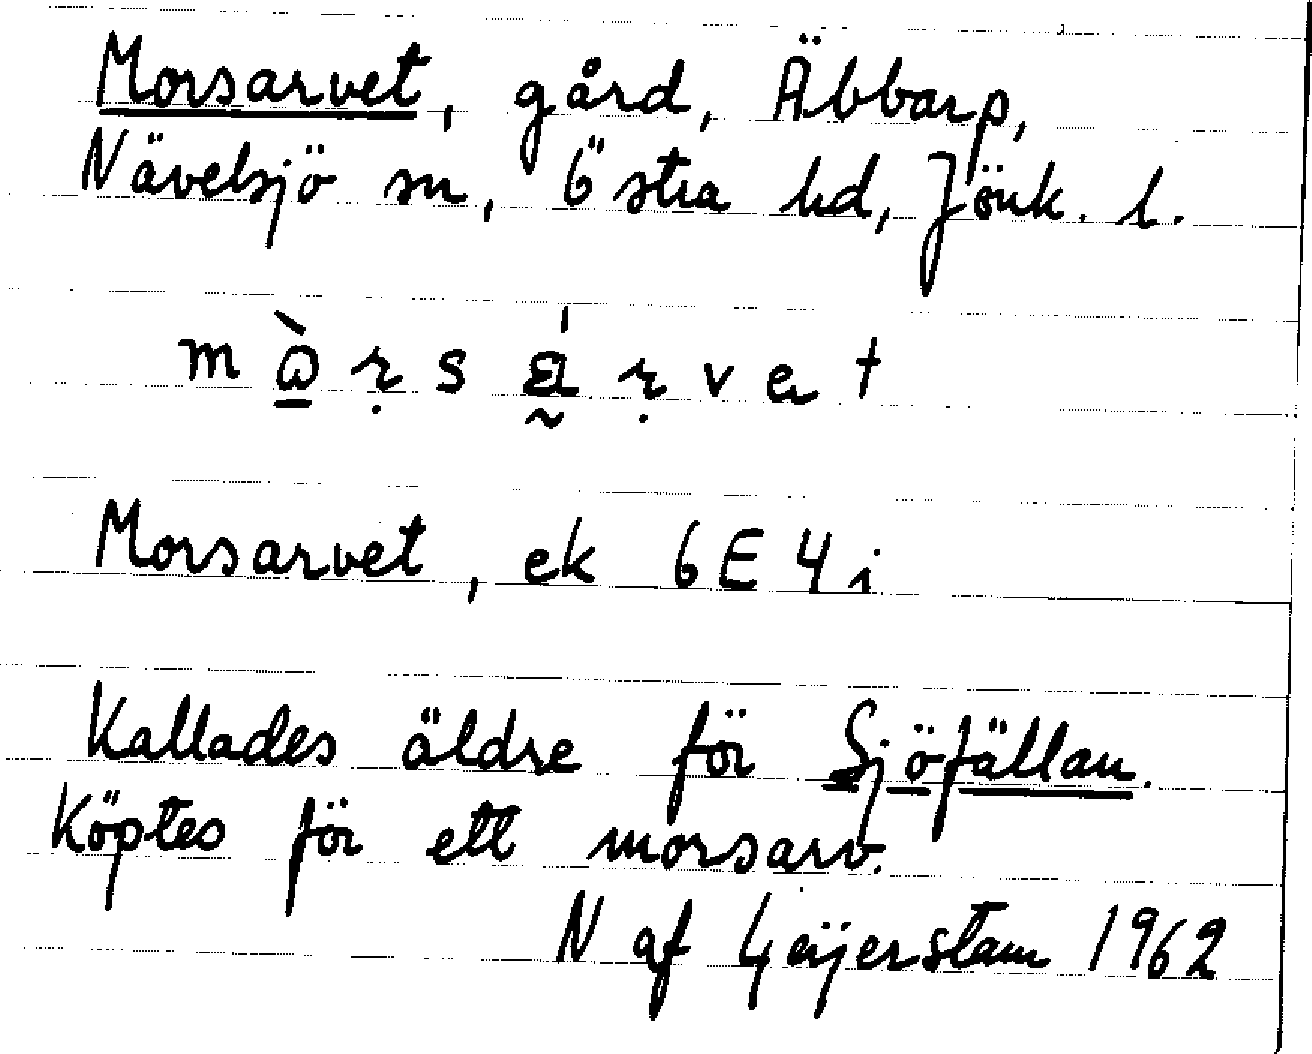 Morsarvet, gård, Äbbarp,
Nävelsjö sn, Östra hd, Jönk. l.
Morsarvet, ek 6E4i
Kallades äldre för Sjöfällan.
Köptes för ett morsarv.
N af Geijerstam 1962